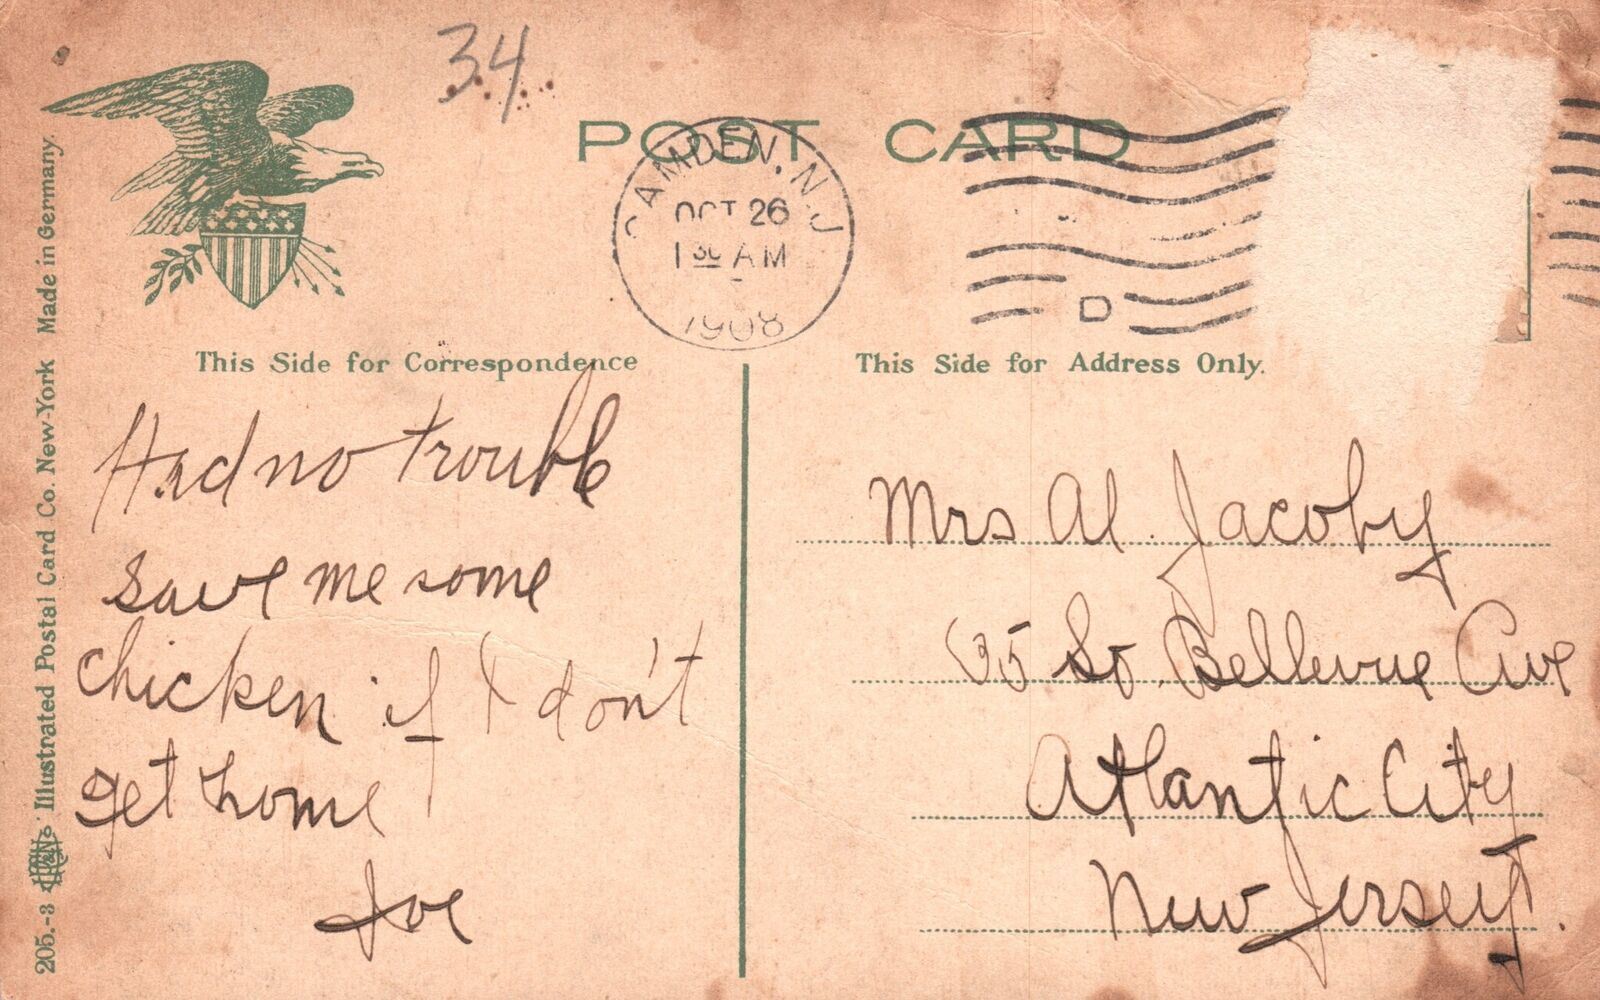 34
POST CARD
CAMDEN, N.J.
OCT 26
1 30 AM
1908
D
This Side for Correspondence
This Side for Address Only.
Had no trouble
save me some
chicken if I don't
get home
Joe
Mrs Al. Jacoby
65 So. Bellevue Ave
Atlantic City
New Jersey.
205.-3 Illustrated Postal Card Co. New-York Made in Germany.